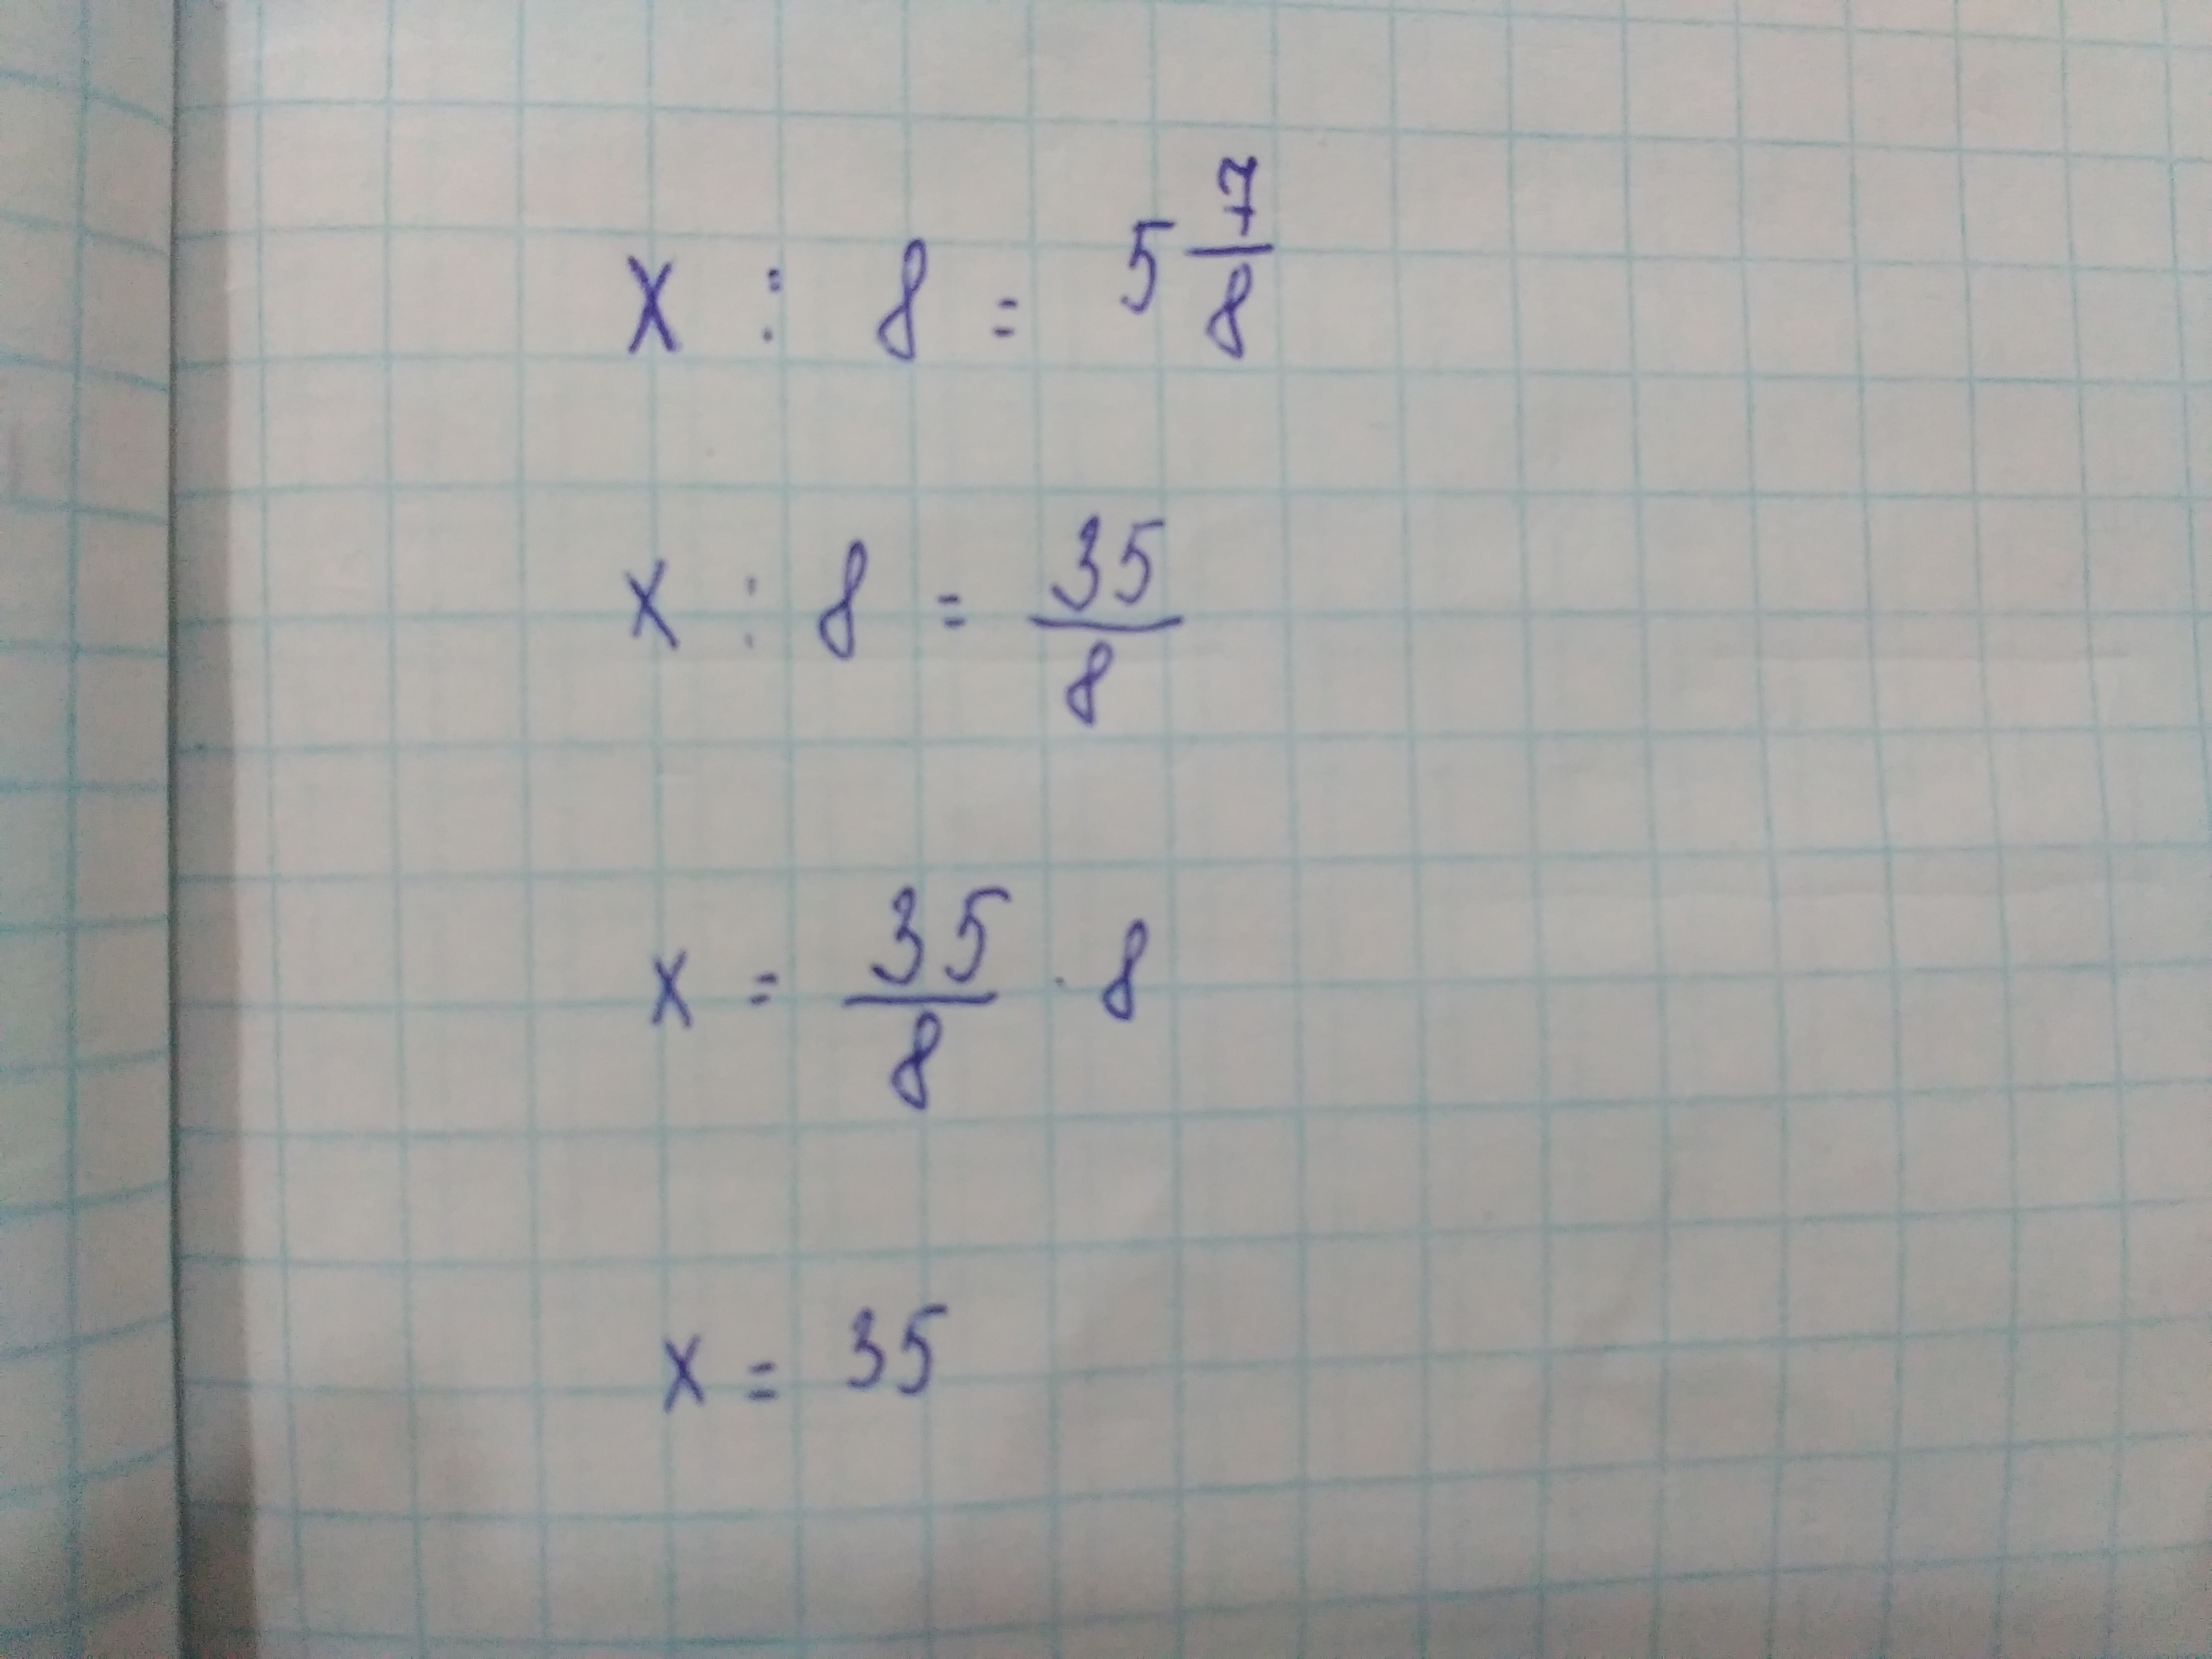 x : 8 = 5 7/8
x : 8 = 35/8
x = 35/8 · 8
x = 35